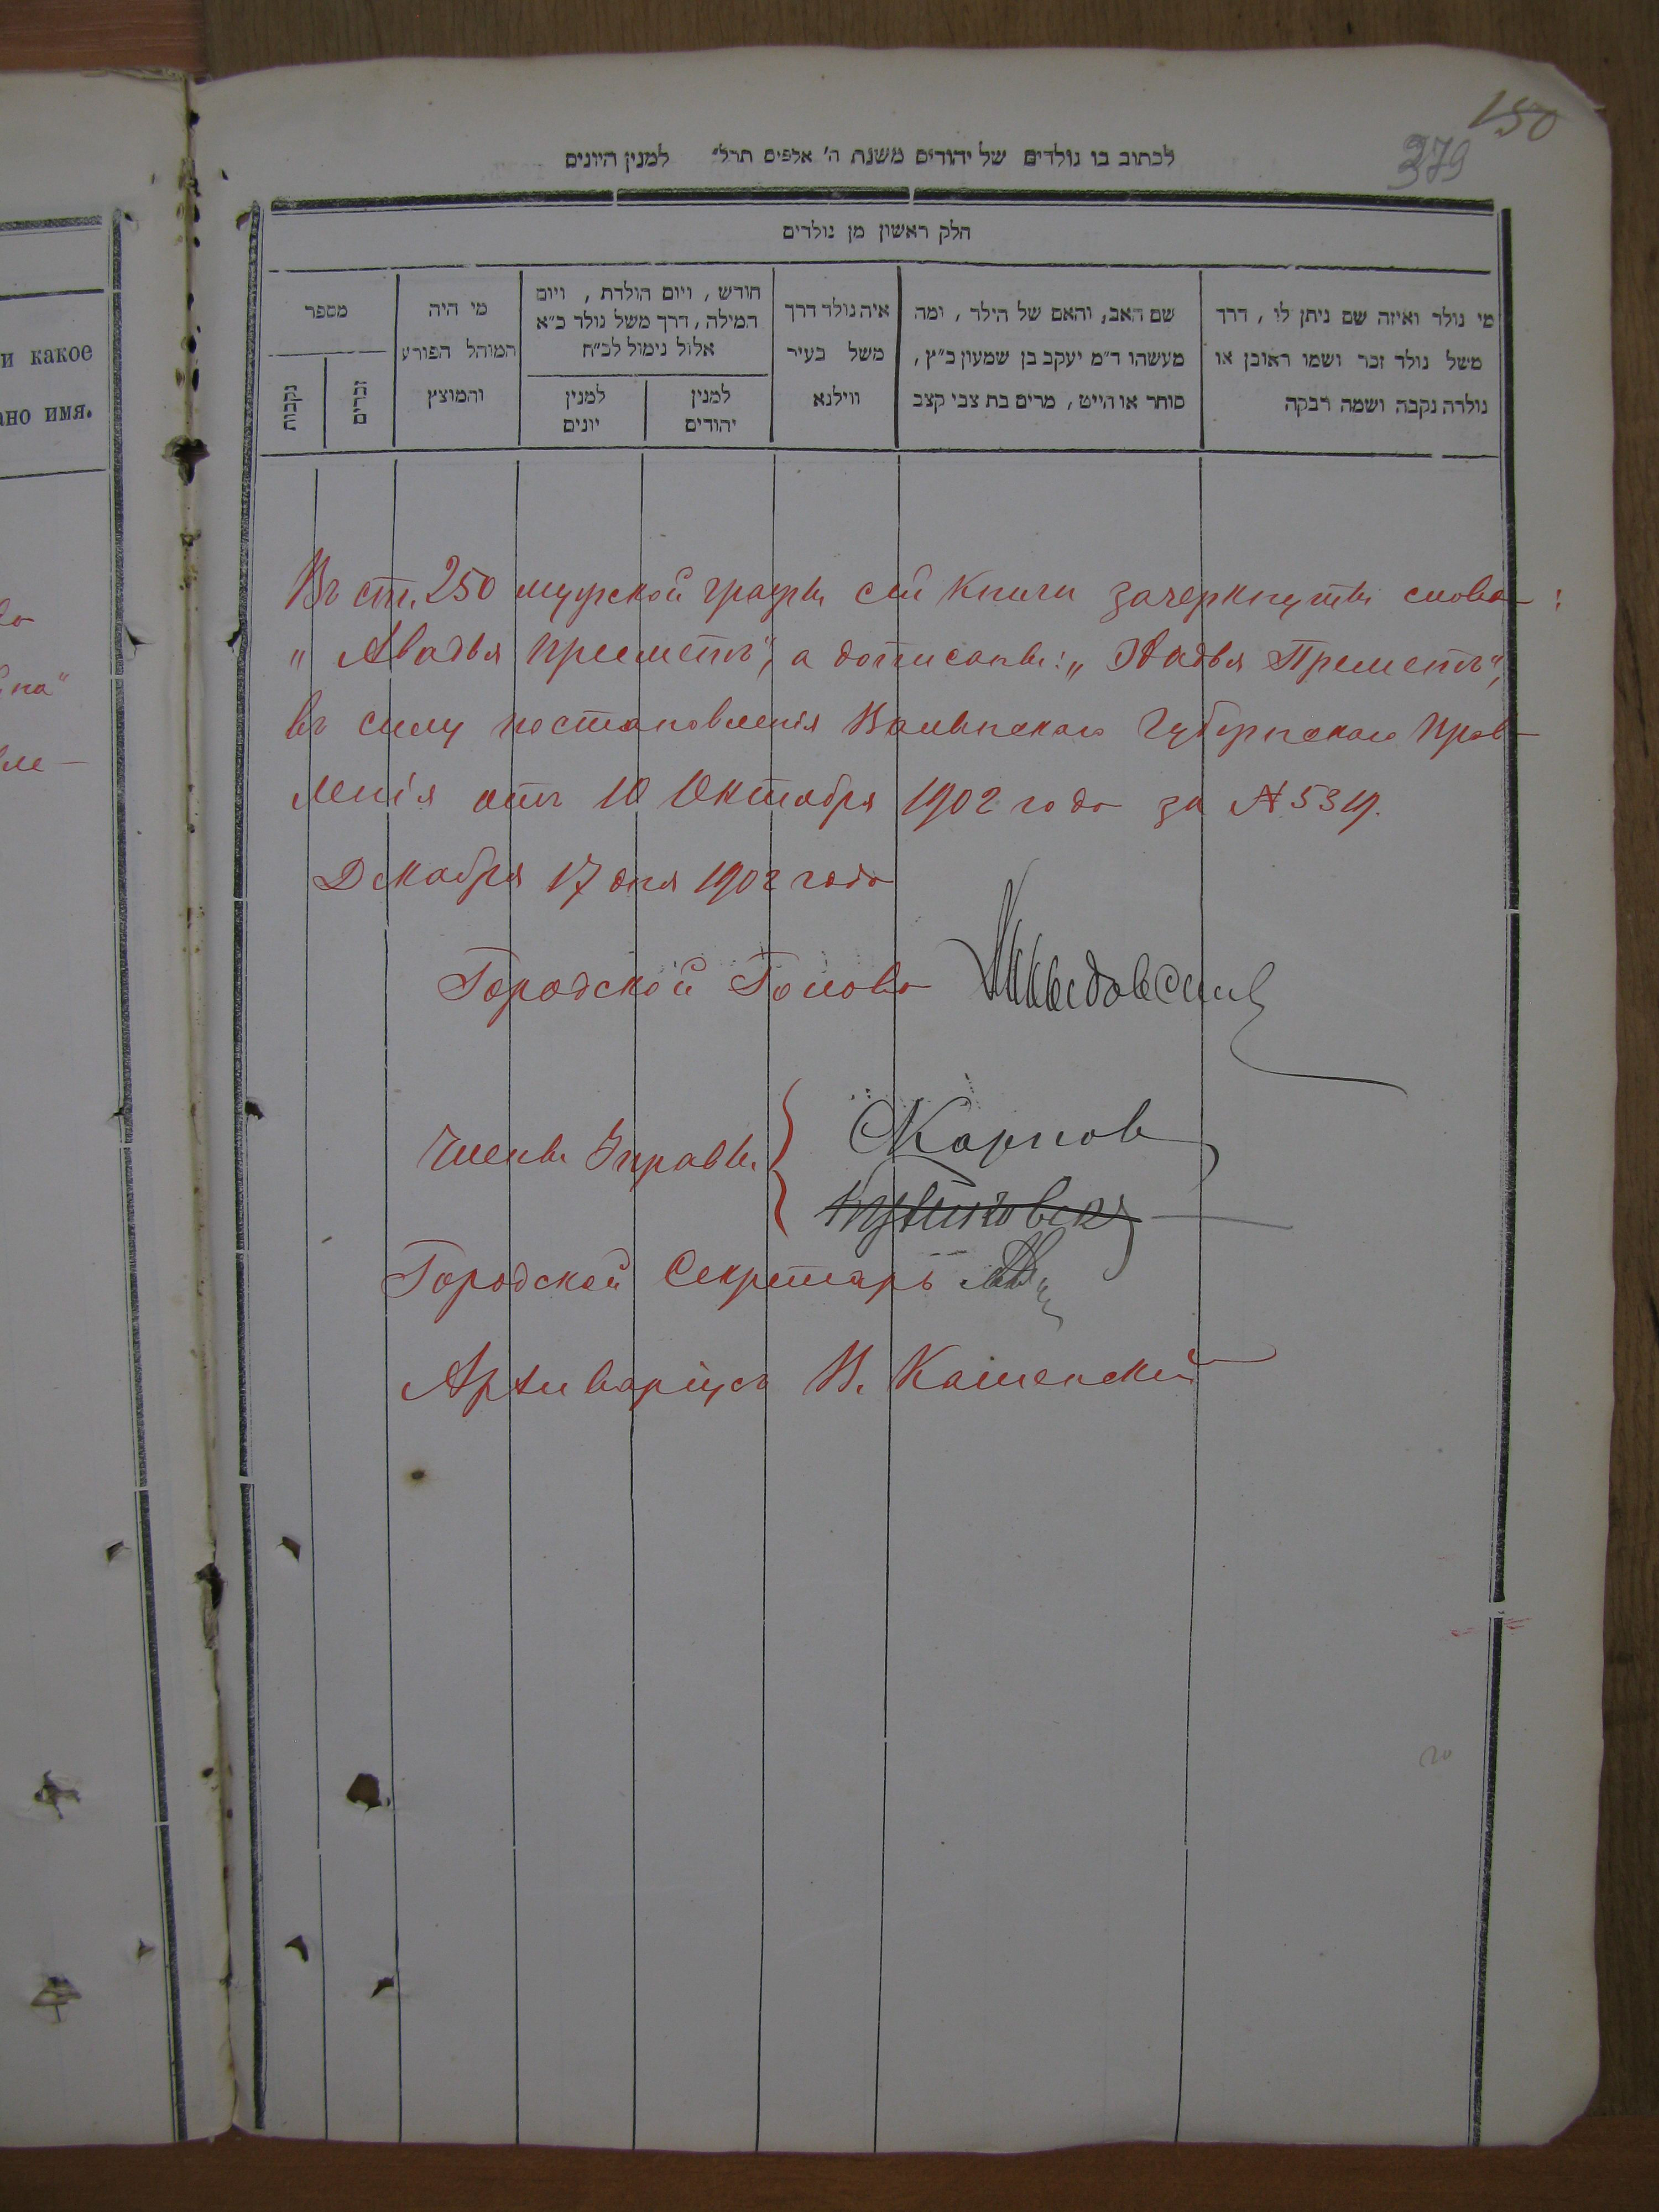 150
379
לכתוב בו נולדים של יהודים משנת ה' אלפים תרל" למנין היונים
חלק ראשון מן נולדים
מי נולד ואיזה שם ניתן לו, דרך
משל נולד זכר ושמו ראובן או
נולדה נקבה ושמה רבקה
שם האב, והאם של הילד, ומה
מעשהו ד"מ יעקב בן שמעון כ"ץ,
סוחר או חייט, מרים בת צבי קצב
איה נולד דרך
משל בעיר
ווילנא
חודש, ויום הולדת, ויום
המילה, דרך משל נולד כ"א
אלול נימול לכ"ח
למנין
יהודים
למנין
יונים
מי היה
המוהל הפורע
והמוצץ
מספר
זכרים
נקבות
и какое
ано имя.
Въ ст. 250 мужской графы сей книги зачеркнуты слова:
„Авадья Пресметъ", а дописаны: „Овадья Преметъ",
въ силу постановленія Волынскаго Губернскаго Прав-
ленія отъ 10 Октября 1902 года за № 5319.
Декабря 17 дня 1902 года
Городской Голова
Члены Управы { СКарпов
Городской Секретарь
Архиваріусъ В. Каменскій